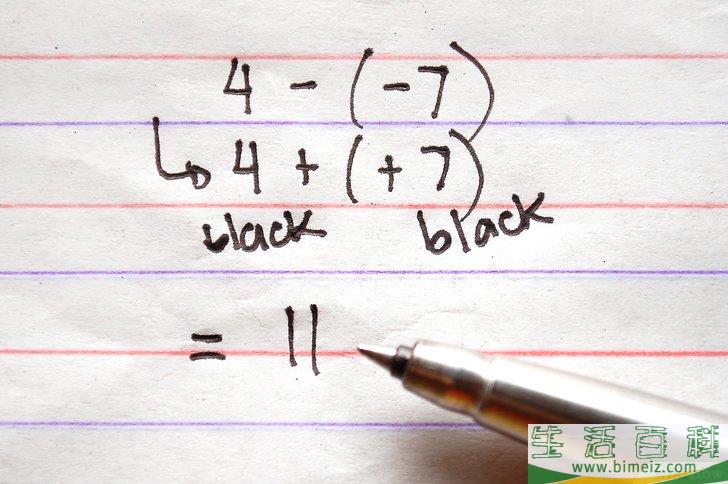 4 - (-7)
4 + (+7)
black black
= 11
生活百科
www.bimeiz.com